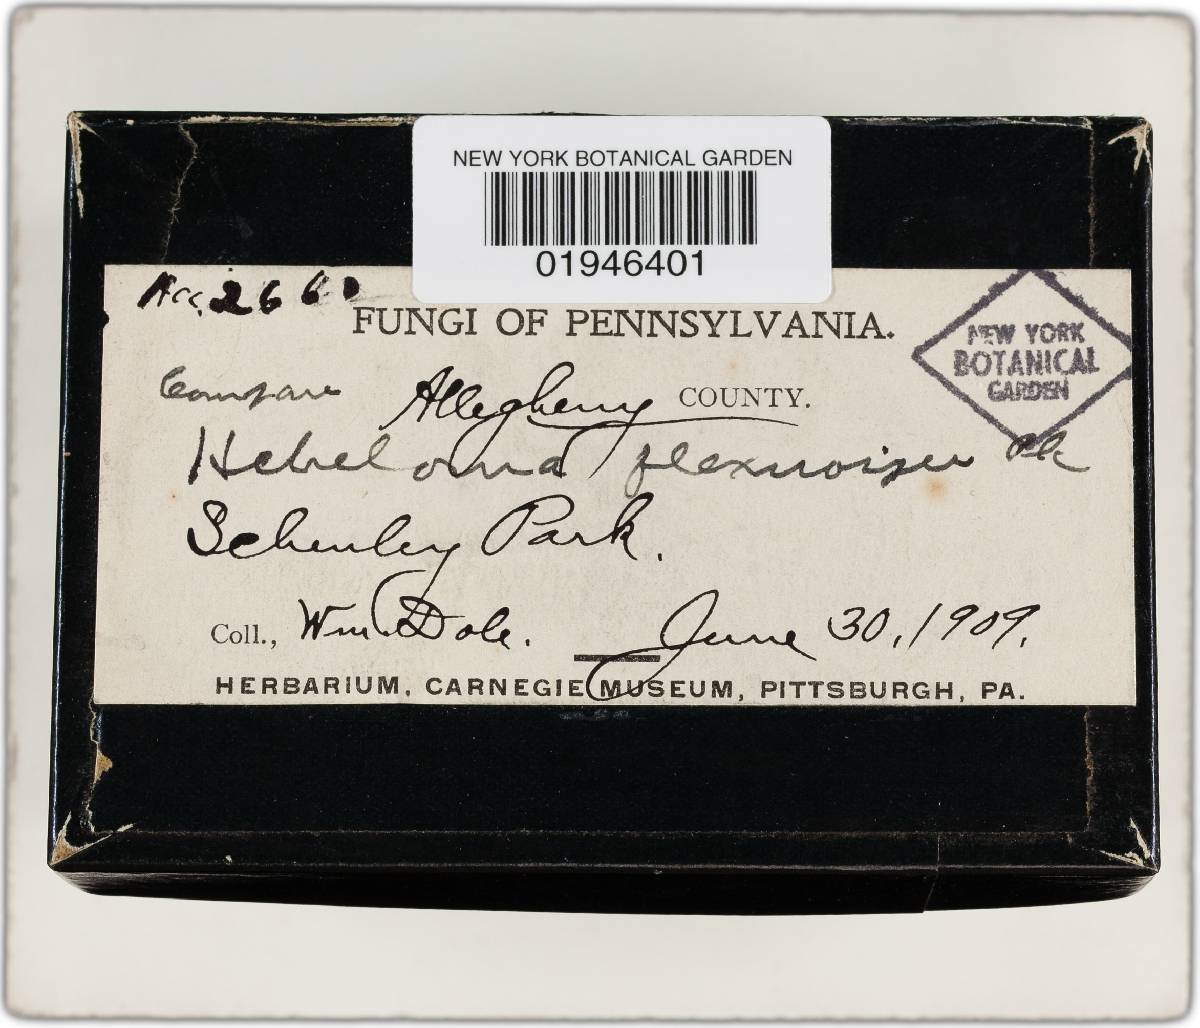 NEW YORK BOTANICAL GARDEN
01946401
Acc. 2660
FUNGI OF PENNSYLVANIA.
NEW YORK
BOTANICAL
GARDEN
Compare Allegheny COUNTY.
Hebeloma Pk
Schenley Park.
Coll., Wm. Dole. June 30, 1909.
HERBARIUM, CARNEGIE MUSEUM, PITTSBURGH, PA.